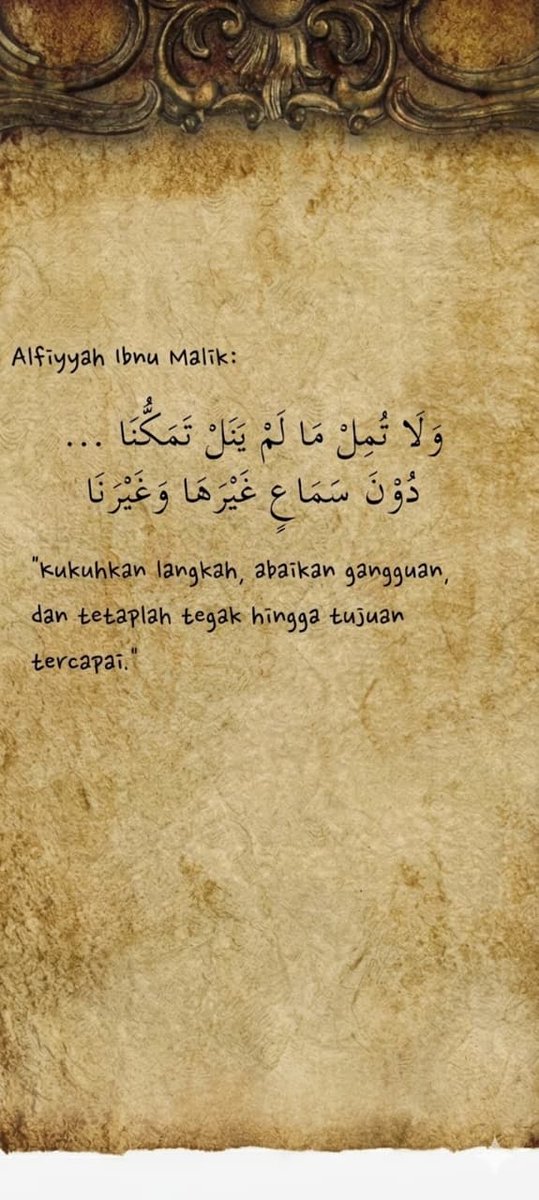 Alfiyyah Ibnu Malik:
وَلَا تُمِلْ مَا لَمْ يَنَلْ تَمَكُّنَا ...
دُوْنَ سَمَاعٍ غَيْرَهَا وَغَيْرَنَا
"kukuhkan langkah, abaikan gangguan,
dan tetaplah tegak hingga tujuan
tercapai."